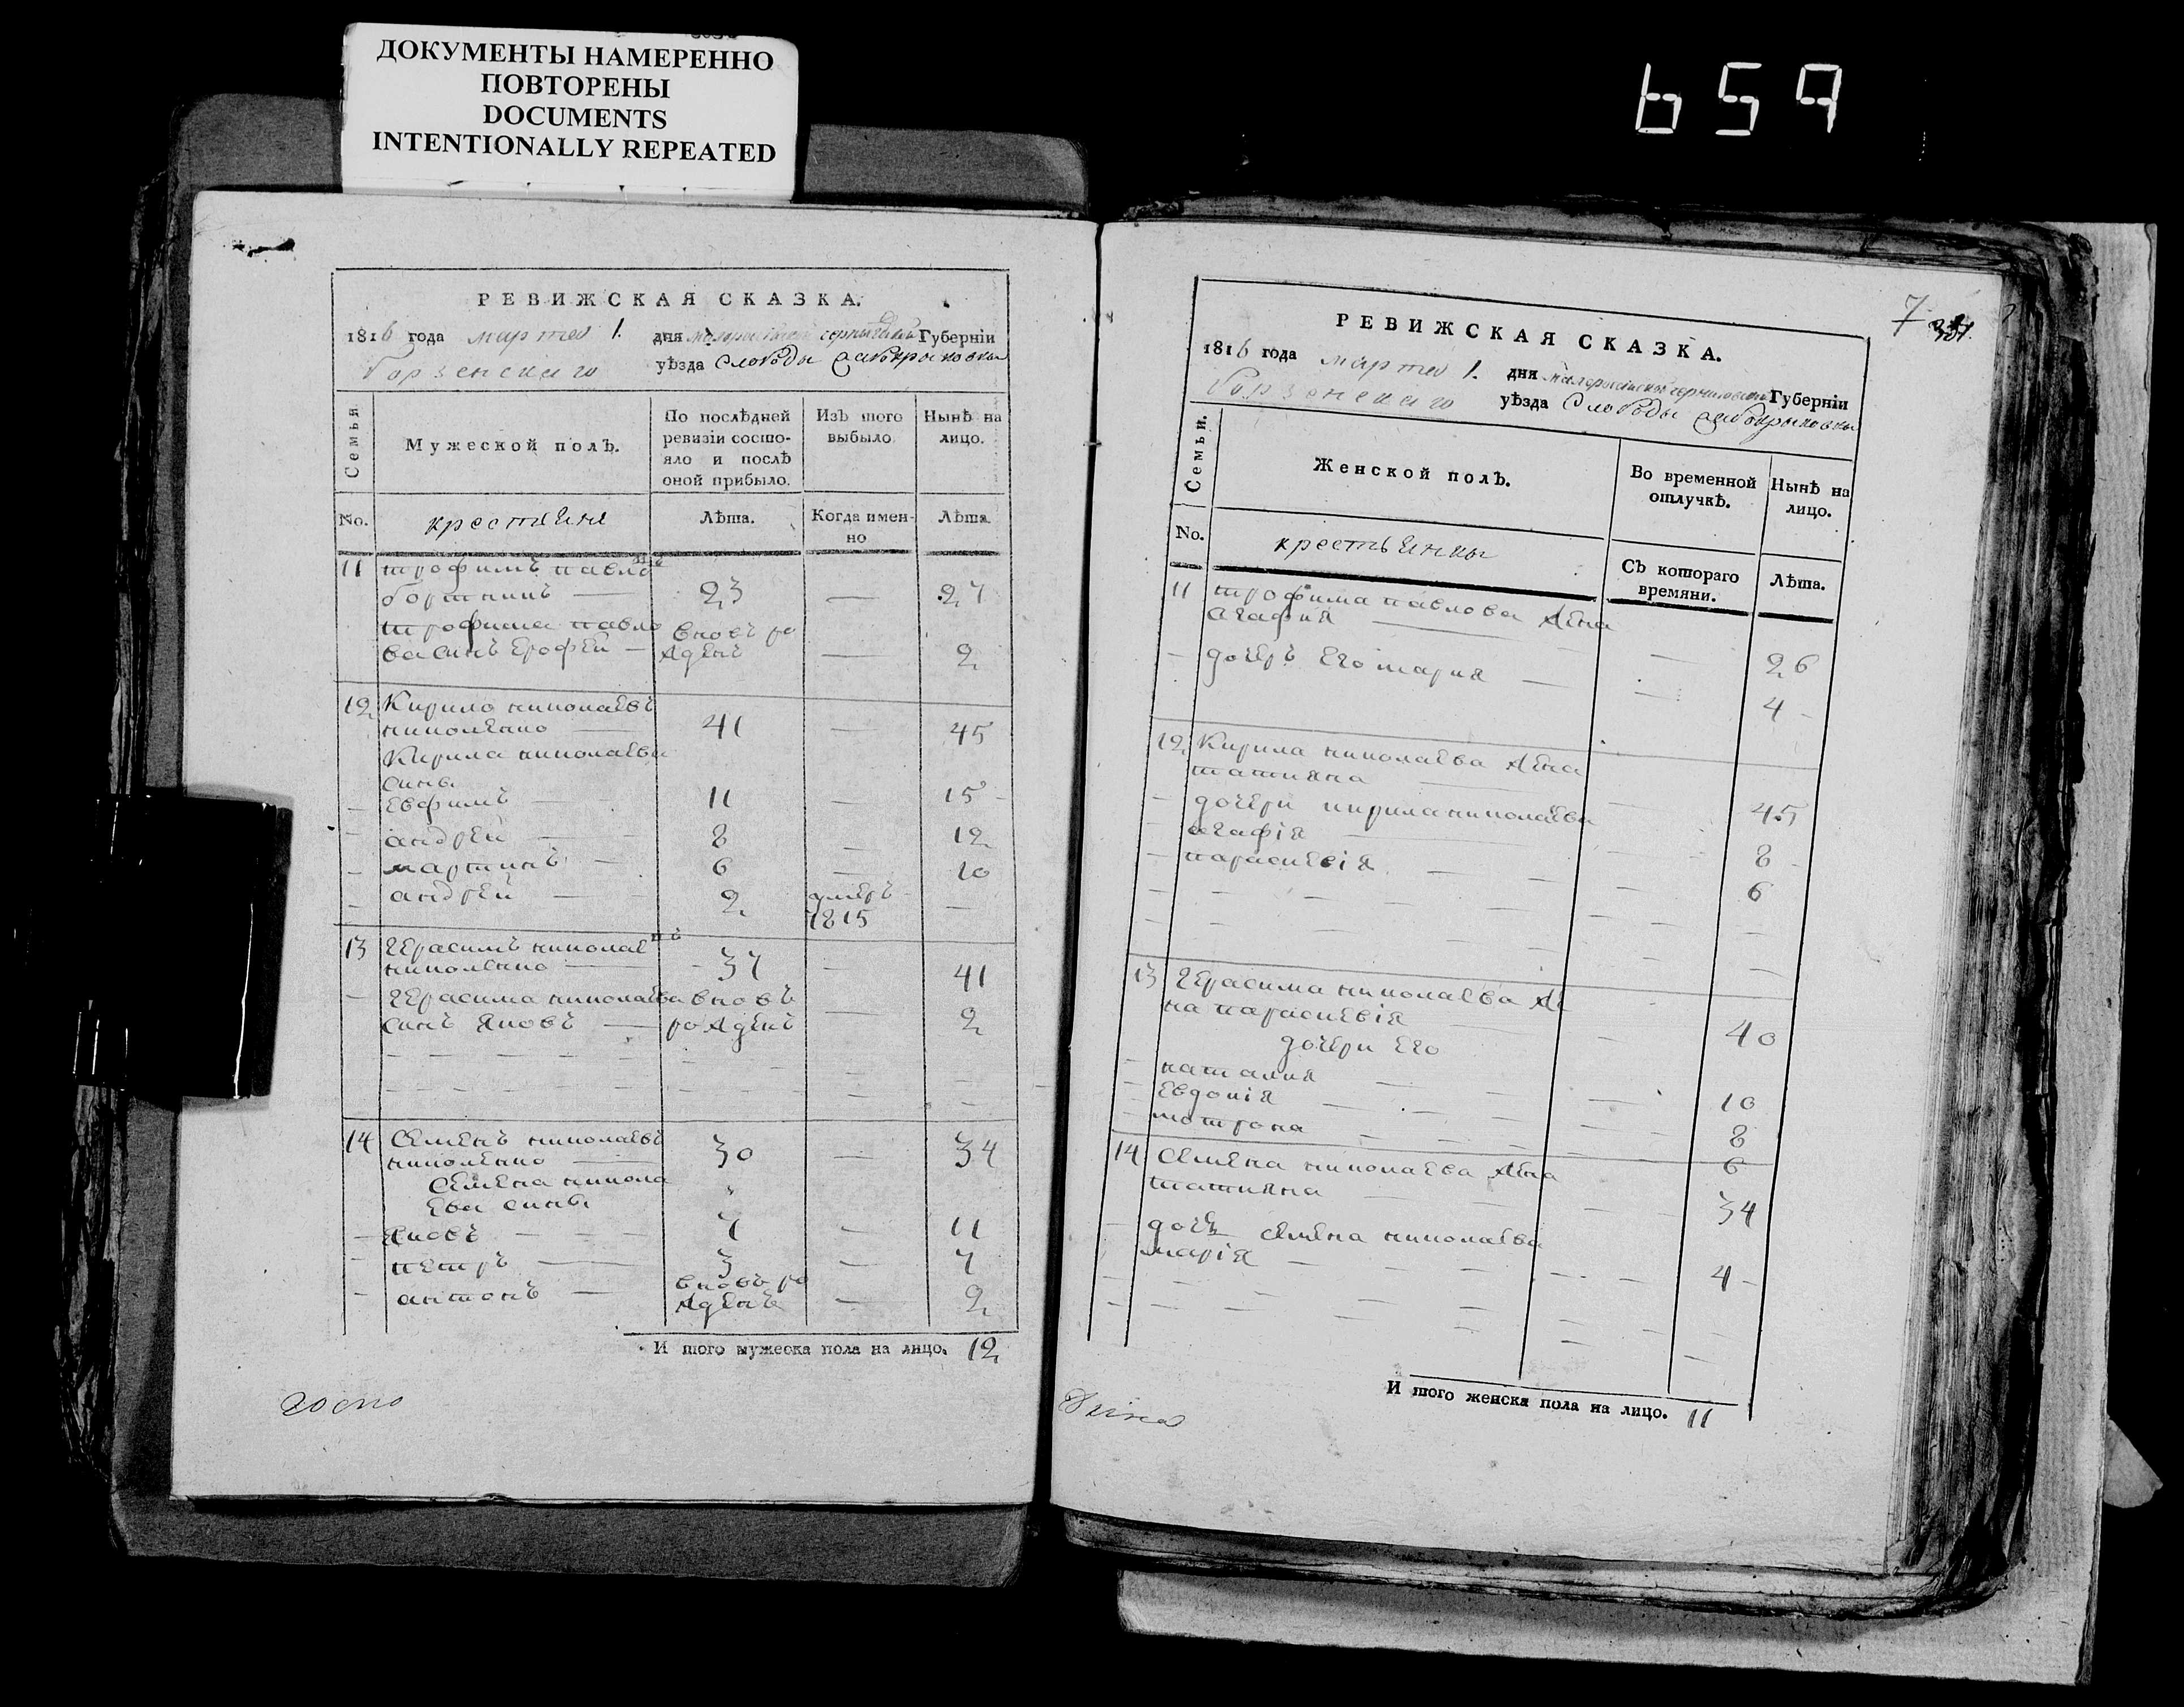 ДОКУМЕНТЫ НАМЕРЕННО
ПОВТОРЕНЫ
DOCUMENTS
INTENTIONALLY REPEATED
659
РЕВИЖСКАЯ СКАЗКА.
1816 года марта 1. дня малоросійской черниговской Губерніи
борзенскаго уѣзда слободы
Семья
Мужеской полъ.
По послѣдней ревизіи состояло и послѣ оной прибыло.
Изъ того выбыло
Нынѣ на лицо.
No.
крестьяне
Лѣта.
Когда именно
Лѣта
11 трофимъ павловъ
23 — 27
трофима павло вновь ро
ва синъ Ерофей — жденъ — 2
12 Кирило николаевъ
николенко — 41 — 45
Кирила николаева
сины
Евфимъ — 11 — 15
андрей — 8 — 12
мартинъ — 6 — 10
андрей — 2 умеръ —
1815
13 Герасимъ николаевъ
николенко — 37 — 41
— Герасима николаева вновь
синъ яковъ — рожденъ — 2
14 Семенъ николаевъ
николенко — 30 — 34
Семена никола
ева сины
— яковъ — 7 — 11
— петръ — 3 — 7
— антонъ — вновь ро
жденъ — 2
И того мужеска пола на лицо. 12
госпо
7
РЕВИЖСКАЯ СКАЗКА.
1816 года марта 1. дня малоросійской черниговской Губерніи
борзенскаго уѣзда слободы
Семьи.
Женской полъ.
Во временной отлучкѣ.
Нынѣ на лицо.
No.
крестьянки
Съ котораго времяни.
Лѣта.
11 трофима павлова жена
агафия — — 26
— дочеръ его мария — — 4
12 Кирила николаева жена
татияна — — 45
— дочери кирила николаева
— агафія — — 8
— параскевія — — 6
13 Герасима николаева же
на параскевія — 40
дочери его
— наталия — — 10
— Евдокія — — 8
— мотрона — — 6
14 Семена николаева жена
татияна — — 34
— семена николаева
марія — — 4
И того женска пола на лицо. 11